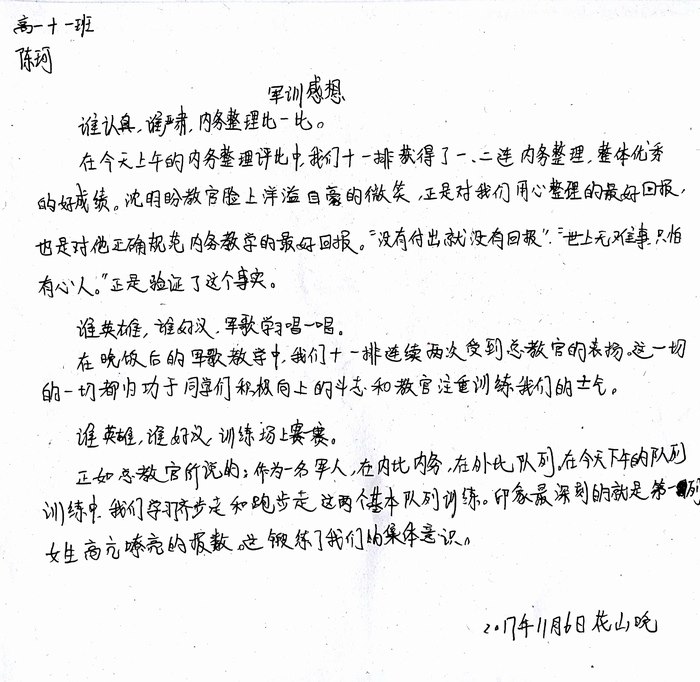 高一十一班
陈珂
军训感想
谁认真,谁严肃,内务整理比一比。
在今天上午的内务整理评比中,我们十一排获得了一、二连内务整理,整体优秀
的好成绩。沈明盼教官脸上洋溢自豪的微笑,正是对我们用心整理的最好回报,
也是对他正确规范内务教学的最好回报。“没有付出就没有回报”.“世上无难事只怕
有心人。”正是验证了这个事实。
谁英雄,谁好汉,军歌学习唱一唱。
在晚饭后的军歌教学中,我们十一排连续两次受到总教官的表扬。这一切
的一切都归功于同学们积极向上的斗志和教官注重训练我们的士气。
谁英雄,谁好汉,训练场上赛一赛。
正如总教官所说的:作为一名军人,在内比内务,在外比队列。在今天下午的队列
训练中,我们学习齐步走和跑步走这两个基本队列训练。印象最深刻的就是第一列
女生高亢嘹亮的报数。这锻炼了我们的集体意识。
2017年11月6日花山晚